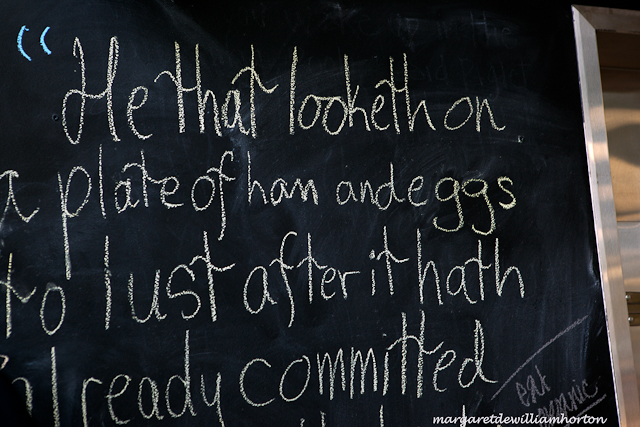 “He that looketh on
a plate of ham and eggs
to lust after it hath
already committed
eat
organic
margaretdewilliamhorton